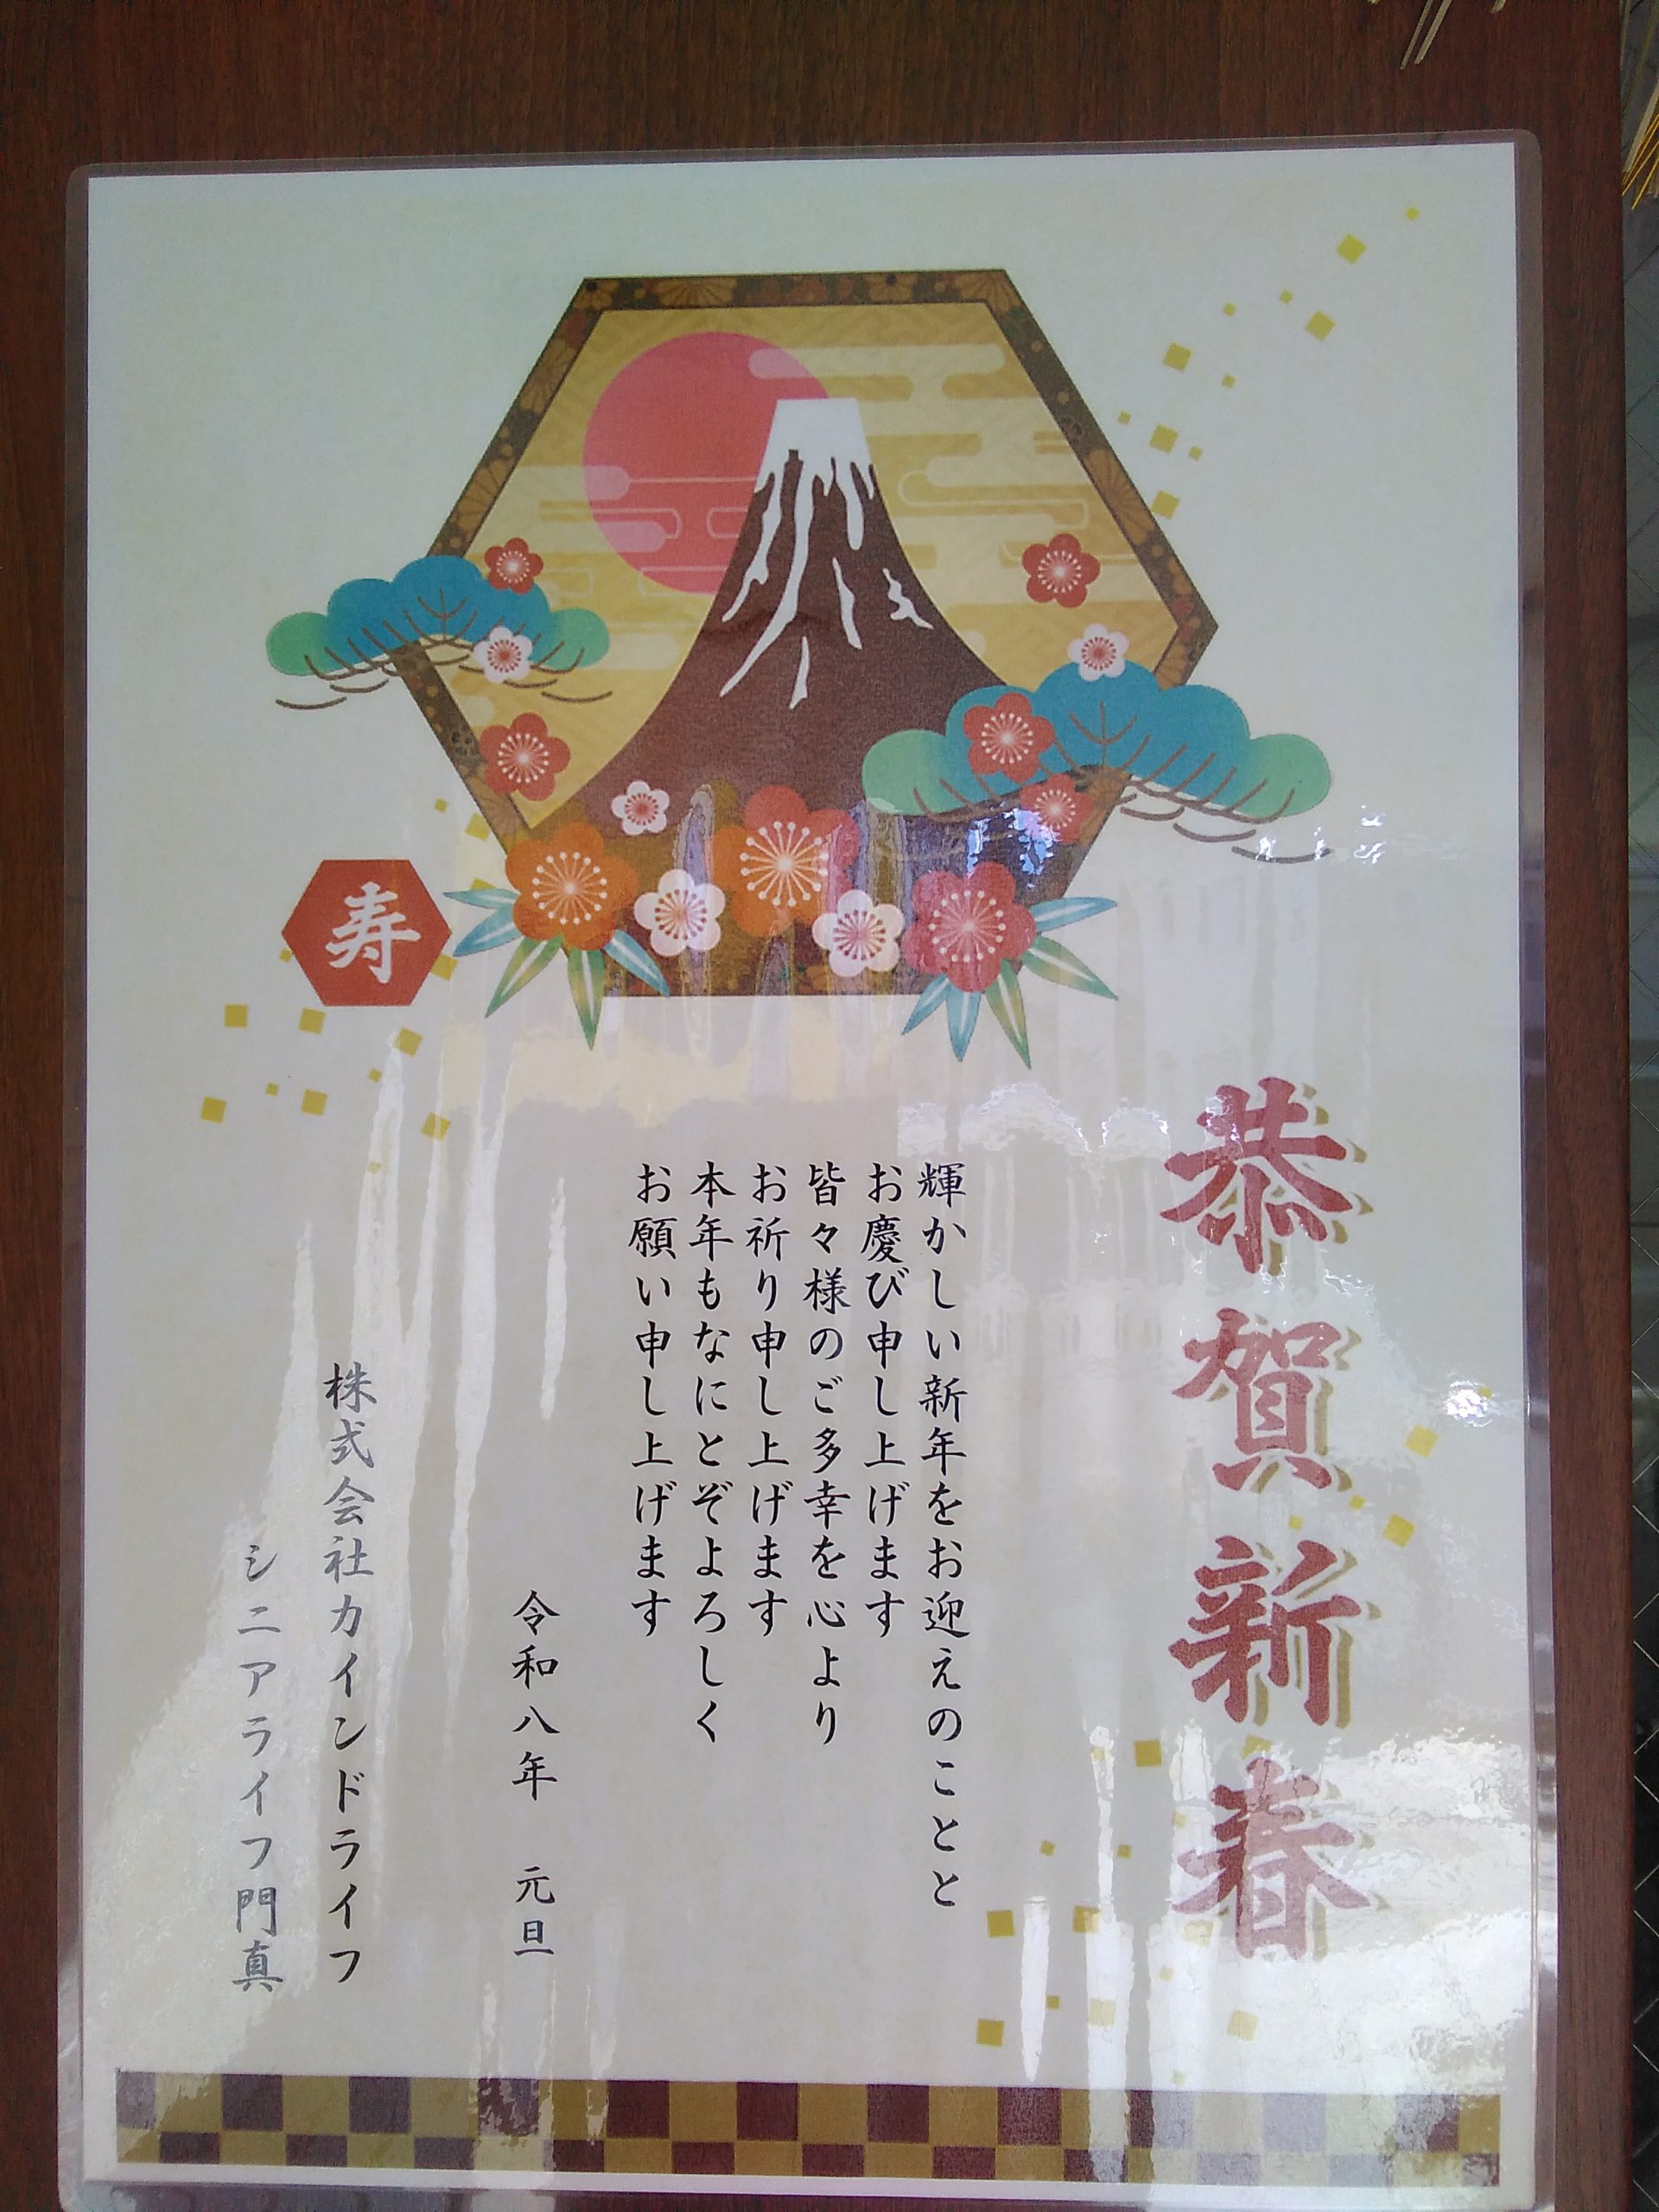 恭賀新春
輝かしい新年をお迎えのことと
お慶び申し上げます
皆々様のご多幸を心より
お祈り申し上げます
本年もなにとぞよろしく
お願い申し上げます
令和八年　元旦
株式会社カインドライフ
シニアライフ門真
寿